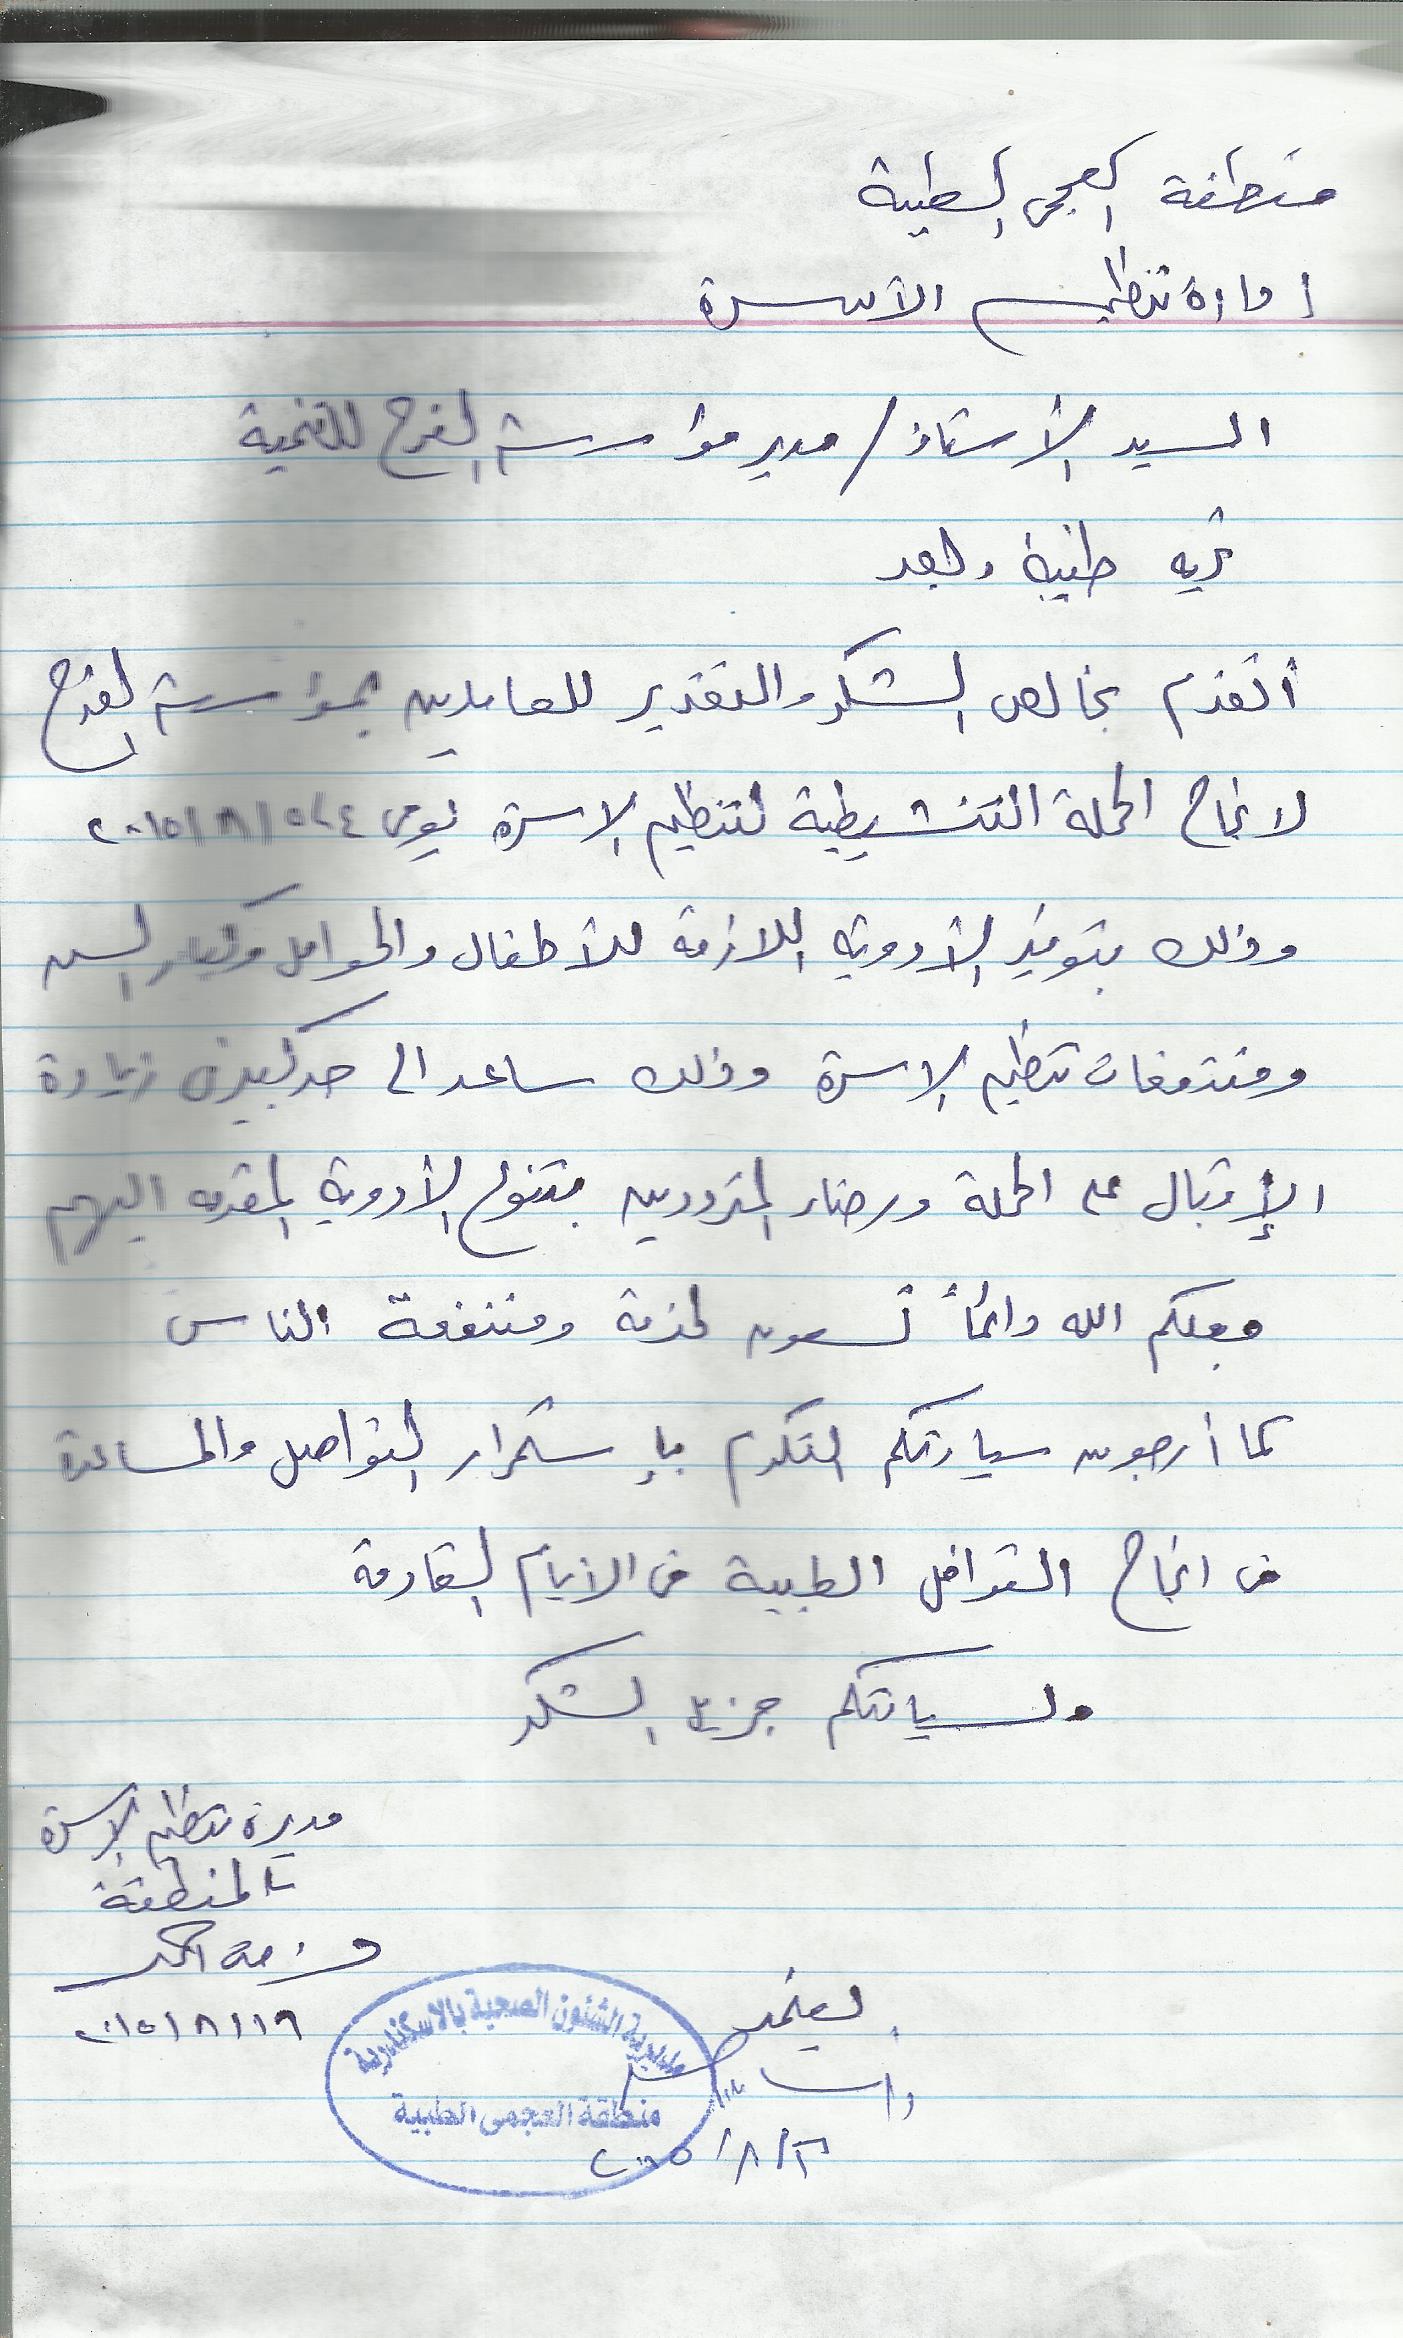 منطقة العجمى الطبية
إدارة تنظيم الأسرة
السيد الأستاذ / مدير مؤسسة الفرح للتنمية
تحيه طيبة وبعد
أتقدم بخالص الشكر والتقدير للعاملين بمؤسسة الفرح
لانجاح الحملة التنشيطية لتنظيم الاسرة يومى ٤، ٥ / ٨ / ٢٠١٥
وذلك بتوفير الأدوية اللازمة للأطفال والحوامل وكبار السن
ومنتفعات تنظيم الاسرة وذلك ساعد الى حد كبير فى زيادة
الإقبال على الحملة ورضاء المترددين بتنوع الأدوية المقدمه اليهم
جعلكم الله دائماً تسعون لخدمة ومنفعة الناس
كما أرجو من سيادتكم التكرم بإستمرار التواصل والمساعدة
فى انجاح القوافل الطبية فى الايام القادمة
ولسيادتكم جزيل الشكر
مديرة تنظيم الاسرة
بالمنطقة
٢٠١٥ / ٨ / ١٩
يعتمد
مديرية الشئون الصحية بالاسكندرية
منطقة العجمى الطبية